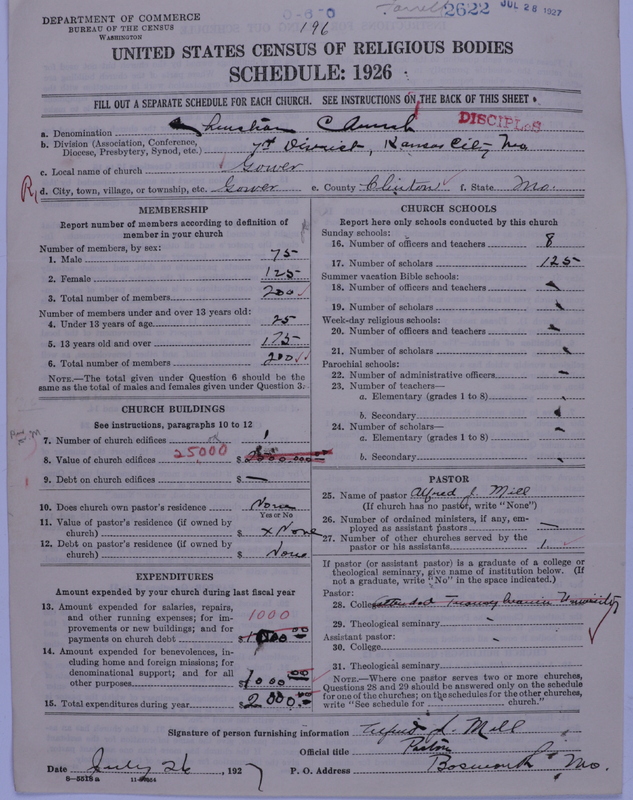 DEPARTMENT OF COMMERCE
BUREAU OF THE CENSUS
WASHINGTON
196
2622
JUL 28 1927
UNITED STATES CENSUS OF RELIGIOUS BODIES
SCHEDULE: 1926
FILL OUT A SEPARATE SCHEDULE FOR EACH CHURCH. SEE INSTRUCTIONS ON THE BACK OF THIS SHEET
a. Denomination Christian Church
DISCIPLES
b. Division (Association, Conference, Diocese, Presbytery, Synod, etc.) 7th District, Kansas City Mo
c. Local name of church Gower
d. City, town, village, or township, etc. Gower e. County Clinton f. State Mo.
MEMBERSHIP
Report number of members according to definition of
member in your church
Number of members, by sex:
1. Male 75
2. Female 125
3. Total number of members 200
Number of members under and over 13 years old:
4. Under 13 years of age 25
5. 13 years old and over 175
6. Total number of members 200
NOTE.—The total given under Question 6 should be the
same as the total of males and females given under Question 3.
CHURCH BUILDINGS
See instructions, paragraphs 10 to 12
7. Number of church edifices 1
8. Value of church edifices 25000 $
9. Debt on church edifices $ —
10. Does church own pastor's residence None
Yes or No
11. Value of pastor's residence (if owned by
church) $ x None
12. Debt on pastor's residence (if owned by
church) $ None
EXPENDITURES
Amount expended by your church during last fiscal year
13. Amount expended for salaries, repairs,
and other running expenses; for im-
provements or new buildings; and for
payments on church debt 1000 $
14. Amount expended for benevolences, in-
cluding home and foreign missions; for
denominational support; and for all
other purposes $1000.00
15. Total expenditures during year $2000.00
CHURCH SCHOOLS
Report here only schools conducted by this church
Sunday schools:
16. Number of officers and teachers 8
17. Number of scholars 125
Summer vacation Bible schools:
18. Number of officers and teachers
19. Number of scholars
Week-day religious schools:
20. Number of officers and teachers
21. Number of scholars
Parochial schools:
22. Number of administrative officers
23. Number of teachers—
a. Elementary (grades 1 to 8)
b. Secondary
24. Number of scholars—
a. Elementary (grades 1 to 8)
b. Secondary
PASTOR
25. Name of pastor Alfred L. Mill
(If church has no pastor, write "None")
26. Number of ordained ministers, if any, em-
ployed as assistant pastors —
27. Number of other churches served by the
pastor or his assistants 1
If pastor (or assistant pastor) is a graduate of a college or
theological seminary, give name of institution below. (If
not a graduate, write "No" in the space indicated.)
Pastor:
28. College attended University
29. Theological seminary
Assistant pastor:
30. College
31. Theological seminary
NOTE.—Where one pastor serves two or more churches,
Questions 28 and 29 should be answered only on the schedule
for one of the churches; on the schedules for the other churches,
write "See schedule for church."
Signature of person furnishing information Alfred L. Mill
Official title Pastor
Date July 26, 1927 P. O. Address Bosworth Mo.
8-5518a